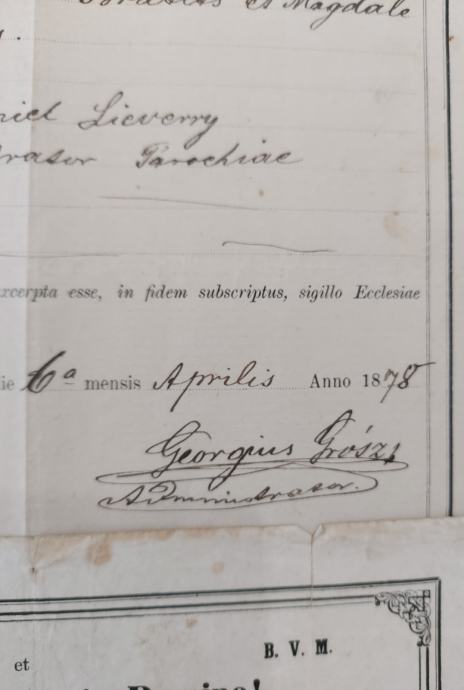 et Magdale
niel Lieverry
rator Parochiae
xcerpta esse, in fidem subscriptus, sigillo Ecclesiae
ie 6ª mensis Aprilis Anno 1878
Georgius Grósz
Administrator.
B. V. M.
et